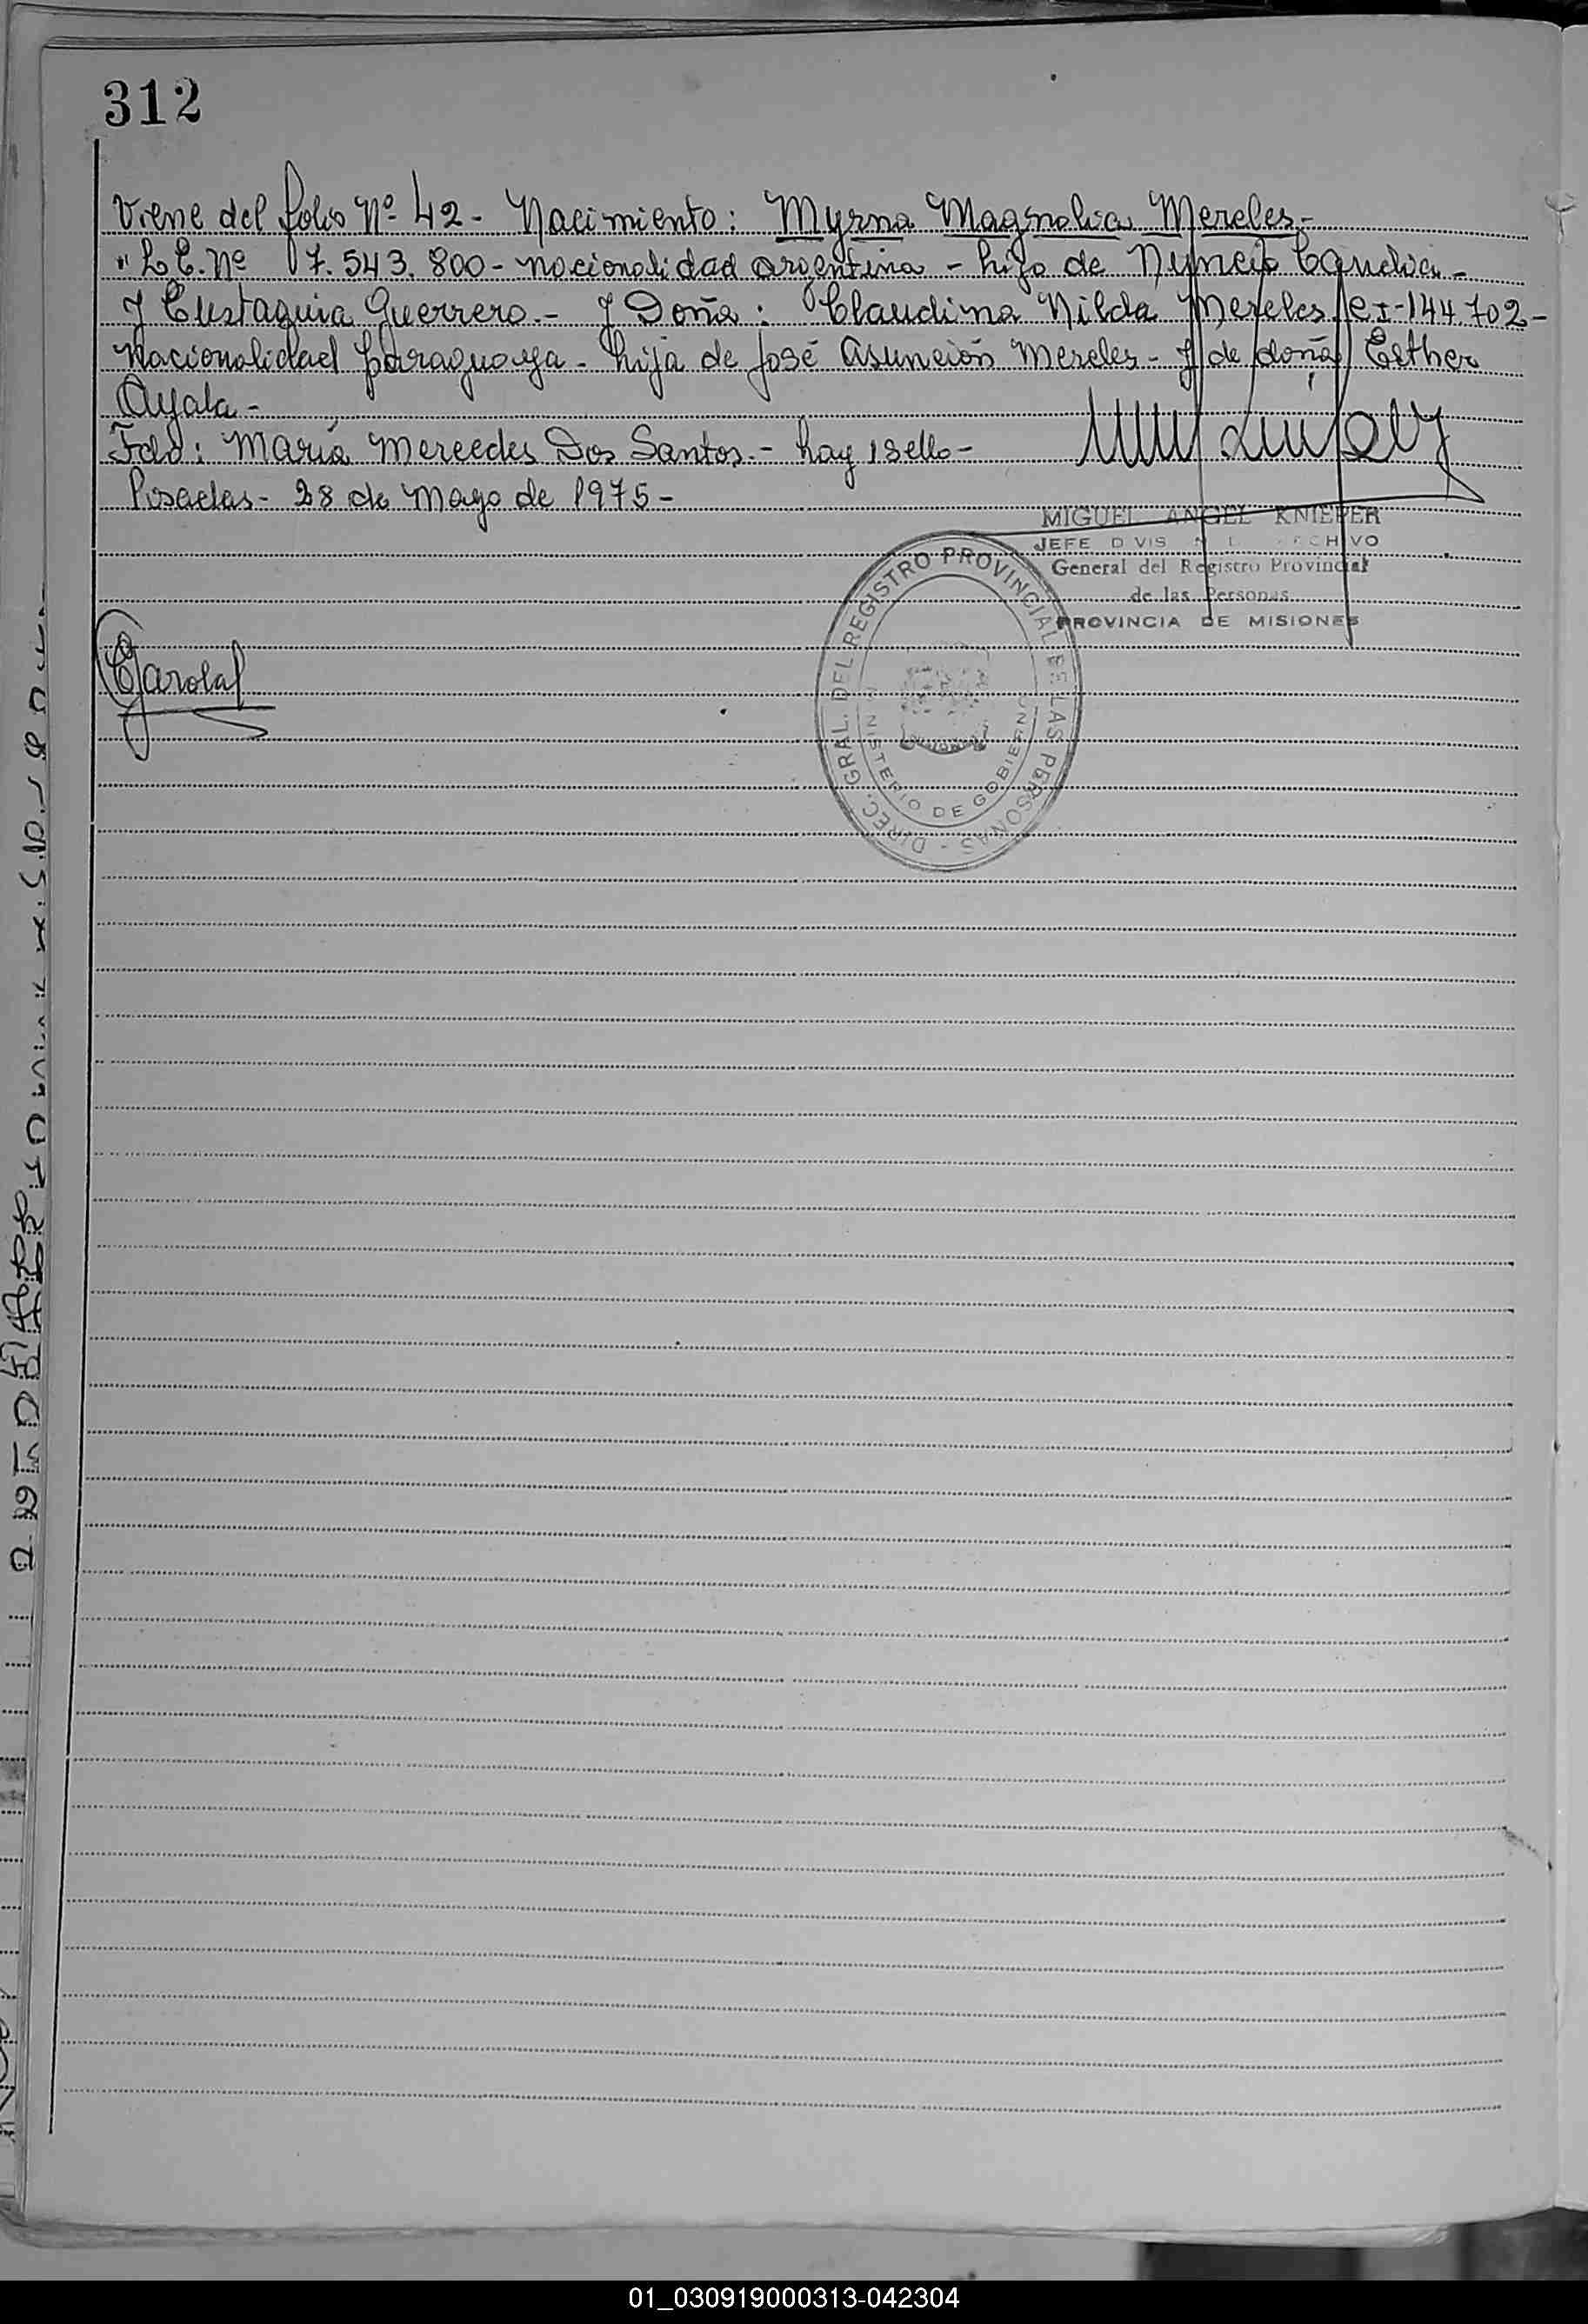 312
Viene del folio Nº 42 - Nacimiento: Myrna Magnolia Mereles.-
" L E. Nº 7.543.800 - nacionalidad argentina - hijo de Nuncio Candia -
y Eustaquia Guerrero.- y Doña: Claudina Nilda Mereles CI-144.702-
Nacionalidad paraguaya - hija de José Asunción Mereles - y de doña Esther
Ayala -
Fdo: María Mercedes Dos Santos.- hay 1 sello -
Posadas - 28 de Mayo de 1975 -
MIGUEL ANGEL KNIEPER
JEFE
General del Registro Provincial
de las Personas
PROVINCIA DE MISIONES
DIREC. GRAL. DEL REGISTRO PROVINCIAL DE LAS PERSONAS -
MINISTERIO DE GOBIERNO
01_030919000313-042304